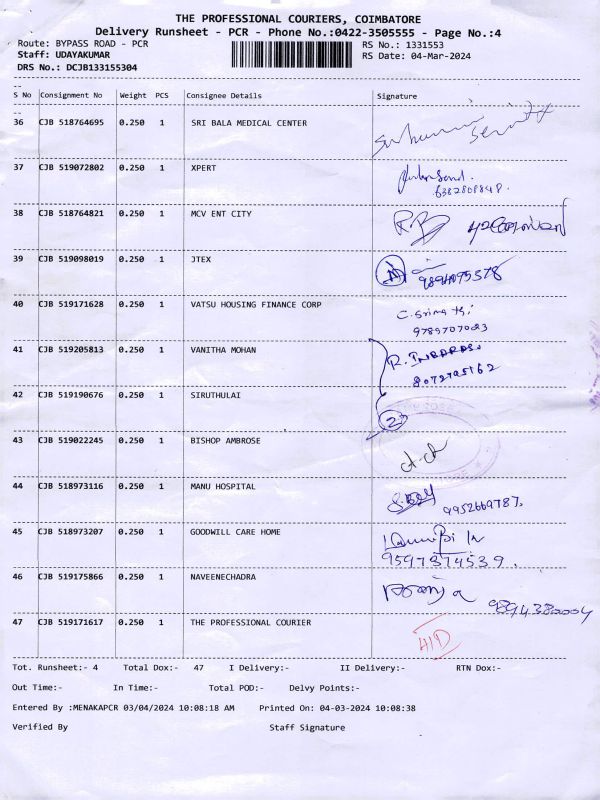 THE PROFESSIONAL COURIERS, COIMBATORE
Delivery Runsheet - PCR - Phone No.:0422-3505555 - Page No.:4
Route: BYPASS ROAD - PCR RS No.: 1331553
Staff: UDAYAKUMAR RS Date: 04-Mar-2024
DRS No.: DCJB133155304
S No Consignment No Weight PCS Consignee Details Signature
36 CJB 518764695 0.250 1 SRI BALA MEDICAL CENTER
37 CJB 519072802 0.250 1 XPERT
38 CJB 518764821 0.250 1 MCV ENT CITY
39 CJB 519098019 0.250 1 JTEX
40 CJB 519171628 0.250 1 VATSU HOUSING FINANCE CORP
41 CJB 519205813 0.250 1 VANITHA MOHAN R. INBARASU
42 CJB 519190676 0.250 1 SIRUTHULAI 2
43 CJB 519022245 0.250 1 BISHOP AMBROSE
44 CJB 518973116 0.250 1 MANU HOSPITAL 9952669787.
45 CJB 518973207 0.250 1 GOODWILL CARE HOME
9597374539.
46 CJB 519175866 0.250 1 NAVEENECHADRA
9894380004
47 CJB 519171617 0.250 1 THE PROFESSIONAL COURIER
Tot. Runsheet:- 4 Total Dox:- 47 I Delivery:- II Delivery:- RTN Dox:-
Out Time:- In Time:- Total POD:- Delvy Points:-
Entered By :MENAKAPCR 03/04/2024 10:08:18 AM Printed On: 04-03-2024 10:08:38
Verified By Staff Signature